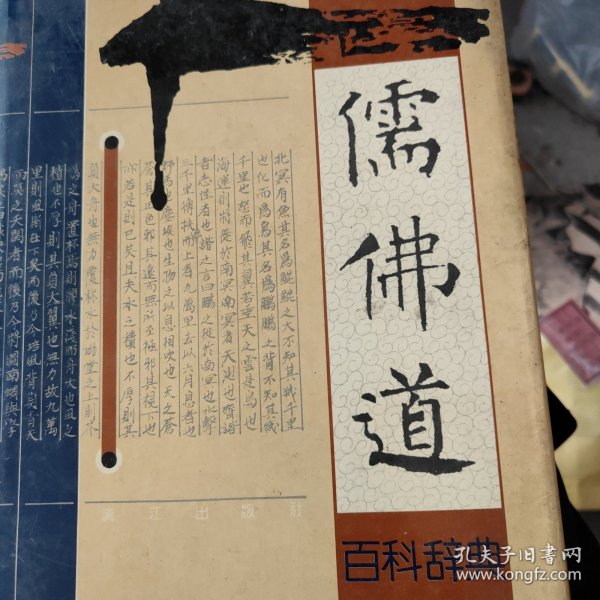 儒佛道
百科辞典
北冥有魚其名爲鯤鯤之大不知其幾千里
也化而爲鳥其名爲鵬鵬之背不知其幾
千里也怒而飛其翼若垂天之雲是鳥也
海運則將徙於南冥南冥者天池也齊諧
者志怪者也諧之言曰鵬之徙於南冥也水擊
三千里摶扶而上者九萬里去以六月息者也
野馬也塵埃也生物之以息相吹也天之蒼
蒼其色邪其遠而無所至極邪其視下也
亦若是則已矣且夫水之積也不厚則其
負大舟也無力覆杯水於坳堂之上則芥
爲之舟置杯焉則膠水淺而舟大也風之
積也不厚則其負大翼也無力故九萬
里則風斯在下矣而後乃今培風背負青天
而莫之夭閼者而後乃今將圖南蜩與學
漓江出版社
孔夫子旧书网
www.kongfz.com